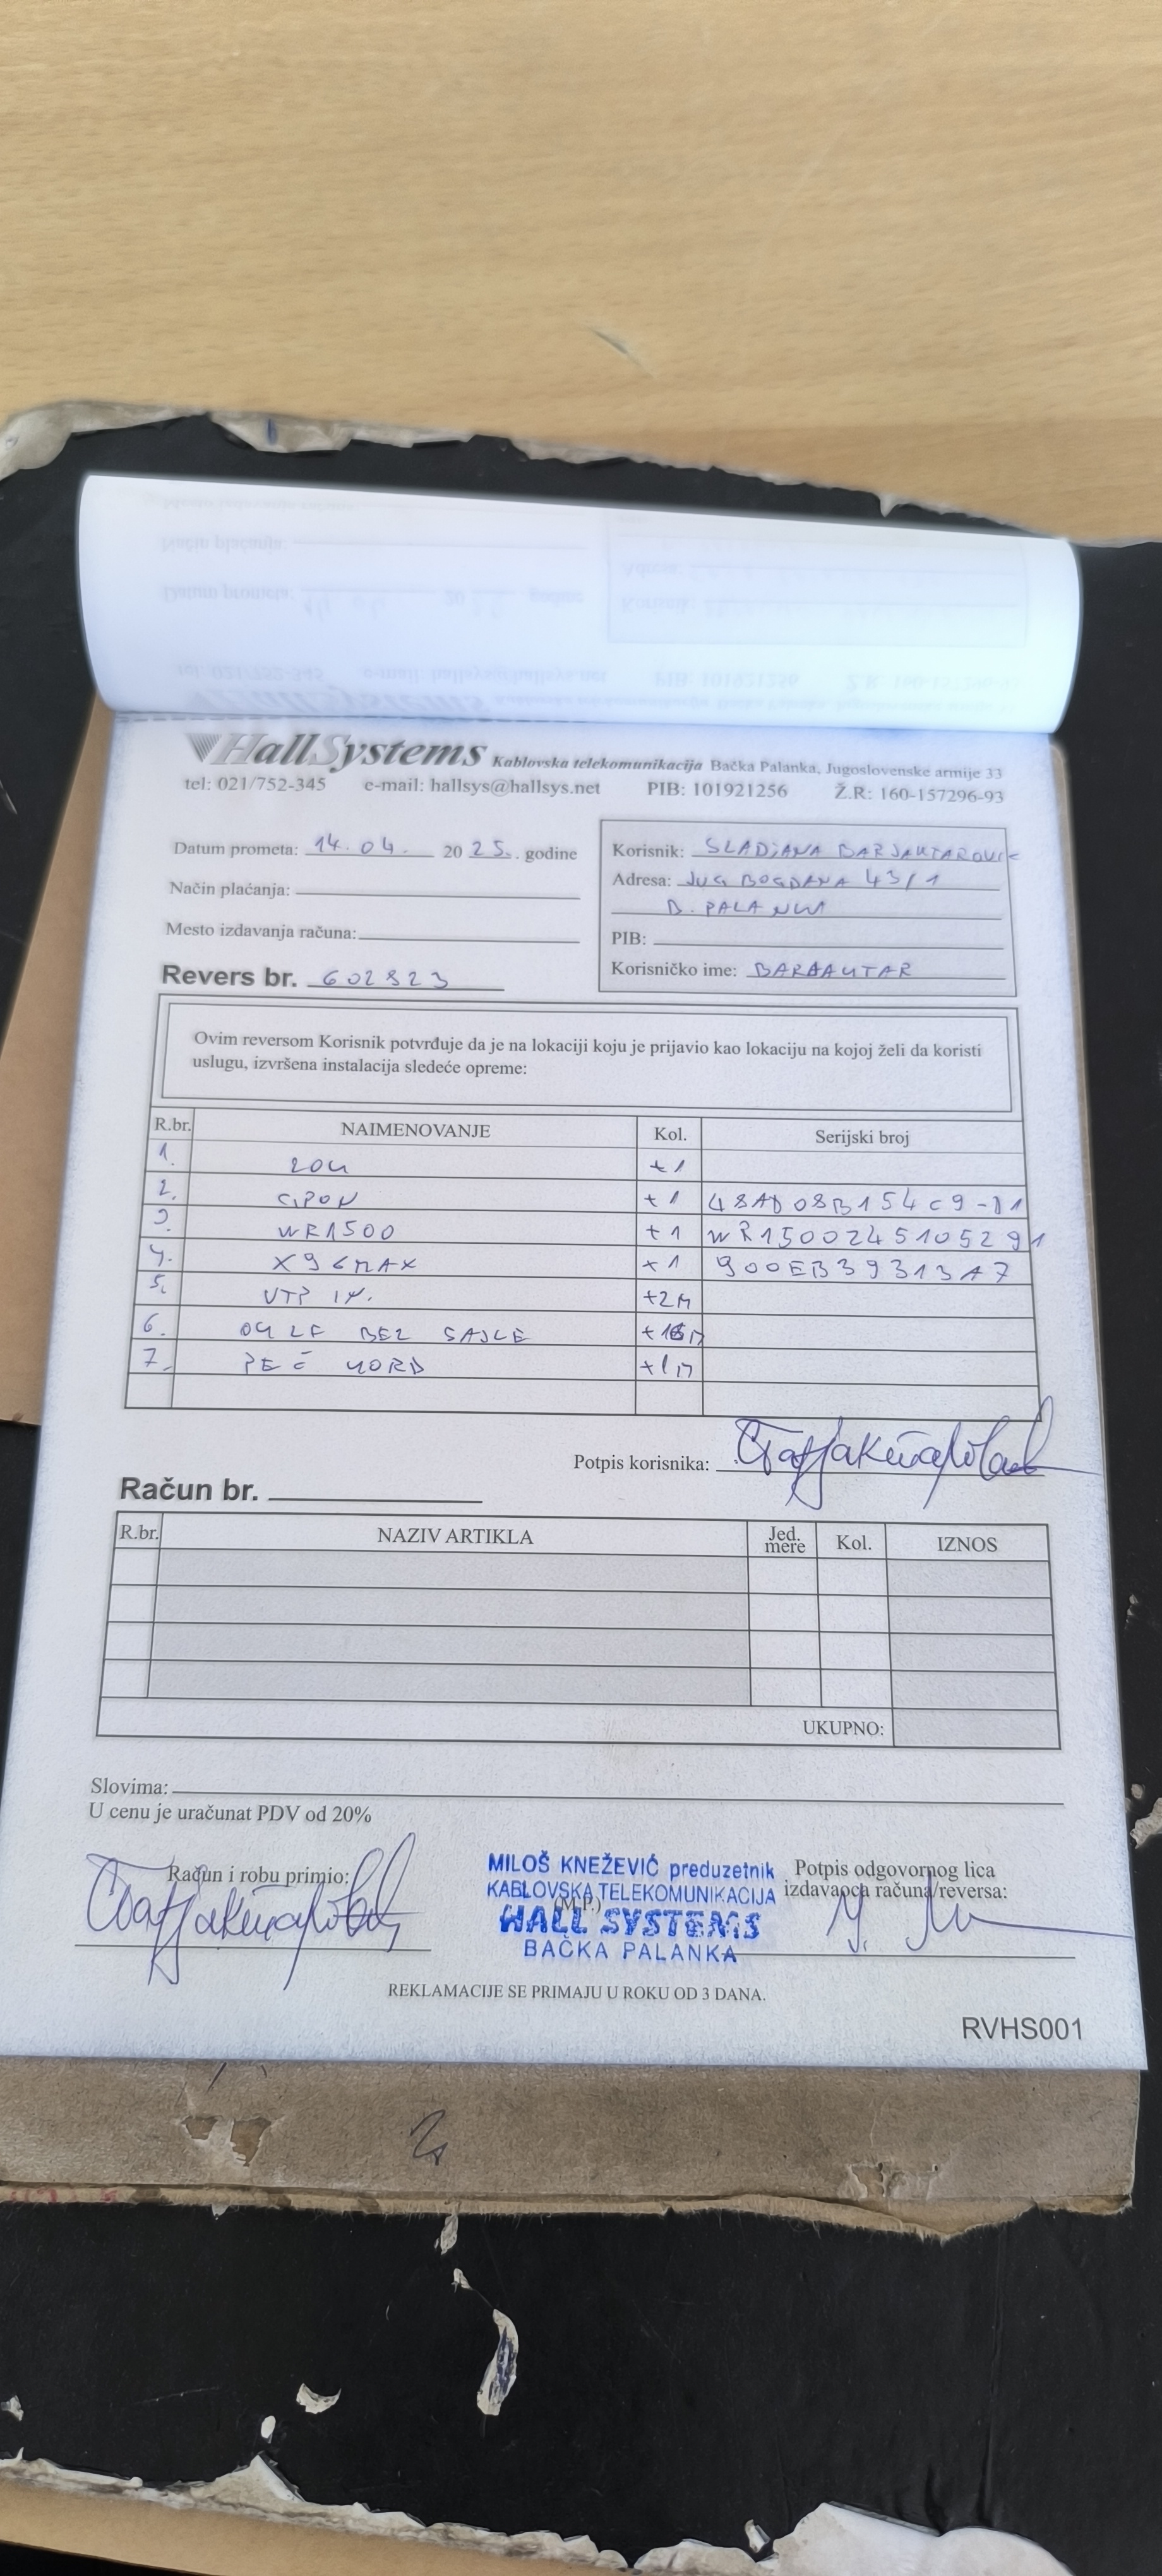 HallSystems Kablovska telekomunikacija Bačka Palanka, Jugoslovenske armije 33
tel: 021/752-345 e-mail: hallsys@hallsys.net PIB: 101921256 Ž.R: 160-157296-93
Datum prometa: 14.04. 2025. godine
Način plaćanja:
Mesto izdavanja računa:
Revers br. 602823
Korisnik: SLADJANA BARJAKTAROVIC
Adresa: JUG BOGDANA 43/1
B. PALANKA
PIB:
Korisničko ime: BARJAKTAR
Ovim reversom Korisnik potvrđuje da je na lokaciji koju je prijavio kao lokaciju na kojoj želi da koristi
uslugu, izvršena instalacija sledeće opreme:
R.br. NAIMENOVANJE Kol. Serijski broj
1. ZOK +1
2. GPON +1 48AD08B154C9-D1
3. WR1500 +1 WR1500245105291
4. X96MAX +1 900EB39313A7
5. UTP +2M
6. OK 2F BEZ SAJLE
7. PEČ KORD +1M
Potpis korisnika:
Račun br.
R.br. NAZIV ARTIKLA Jed. mere Kol. IZNOS
UKUPNO:
Slovima:
U cenu je uračunat PDV od 20%
Račun i robu primio:
MILOŠ KNEŽEVIĆ preduzetnik
KABLOVSKA TELEKOMUNIKACIJA
(M.P.)
HALL SYSTEMS
BAČKA PALANKA
Potpis odgovornog lica
izdavaoca računa/reversa:
REKLAMACIJE SE PRIMAJU U ROKU OD 3 DANA.
RVHS001